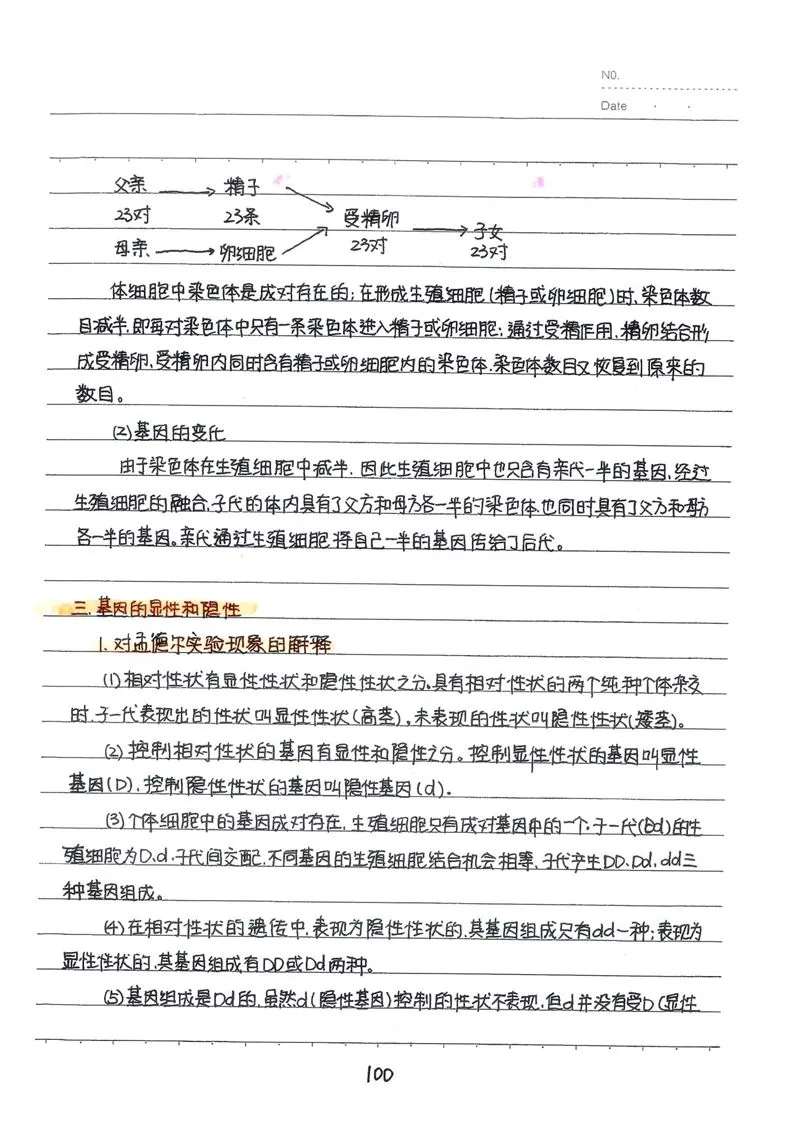 NO.
Date
父亲 → 精子
23对 23条 受精卵 → 子女
母亲 → 卵细胞 23对 23对
体细胞中染色体是成对存在的;在形成生殖细胞(精子或卵细胞)时,染色体数
目减半,即每对染色体中只有一条染色体进入精子或卵细胞;通过受精作用,精卵结合形
成受精卵,受精卵内同时含有精子或卵细胞内的染色体.染色体数目又恢复到原来的
数目。
(2)基因的变化
由于染色体在生殖细胞中减半,因此生殖细胞中也只含有亲代一半的基因,经过
生殖细胞的融合,子代的体内具有了父方和母方各一半的染色体.也同时具有了父方和母方
各一半的基因。亲代通过生殖细胞将自己一半的基因传给了后代。
三.基因的显性和隐性
1.对孟德尔实验现象的解释
(1)相对性状有显性性状和隐性性状之分.具有相对性状的两个纯种个体杂交
时,子一代表现出的性状叫显性性状(高茎),未表现的性状叫隐性性状(矮茎)。
(2)控制相对性状的基因有显性和隐性之分。控制显性性状的基因叫显性
基因(D),控制隐性性状的基因叫隐性基因(d)。
(3)个体细胞中的基因成对存在,生殖细胞只有成对基因中的一个.子一代(Dd)的生
殖细胞为D、d.子代间交配.不同基因的生殖细胞结合机会相等,子代产生DD、Dd、dd三
种基因组成。
(4)在相对性状的遗传中,表现为隐性性状的,其基因组成只有dd一种;表现为
显性性状的,其基因组成有DD或Dd两种。
(5)基因组成是Dd的,虽然d(隐性基因)控制的性状不表现,但d并没有受D(显性
100